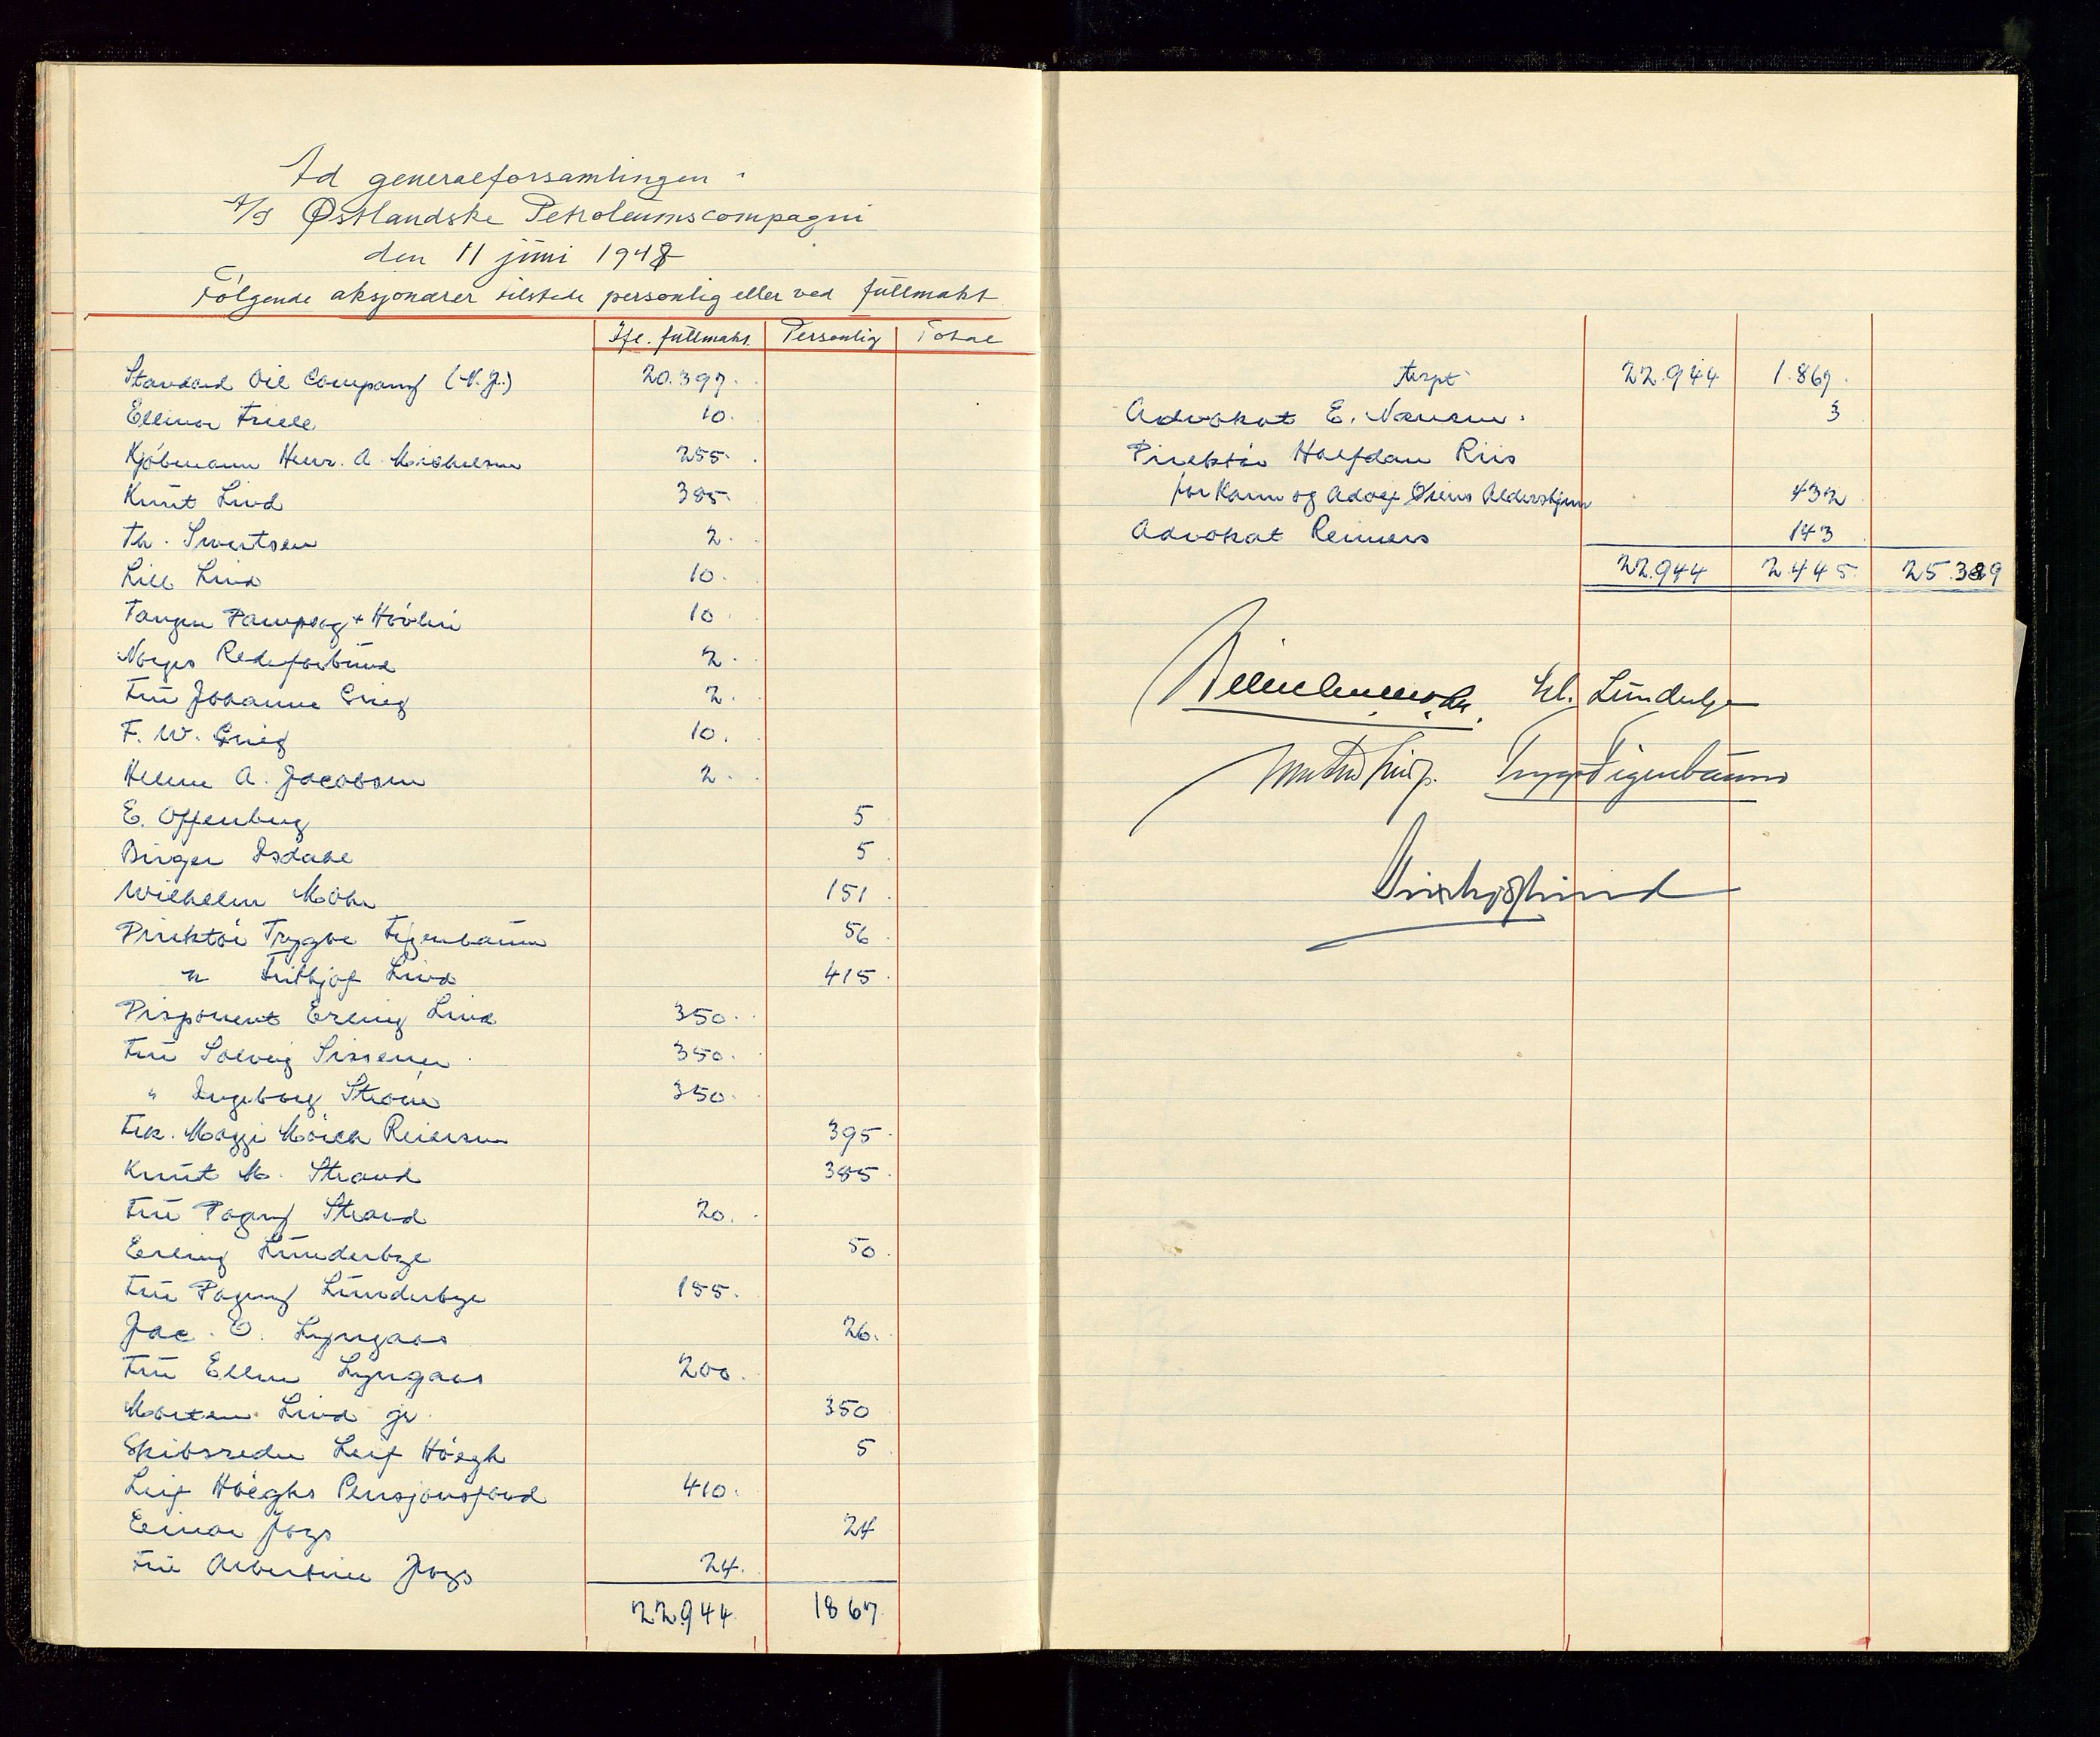 Ad generalforsamlingen i
A/S Østlandske Petroleumscompagni
den 11 juni 1948
Følgende aksjonærer tilstede personlig eller ved fullmakt
Ifl. fullmakt. Personlig Total
Standard Oil Company (N.J.) 20.397.
Ellinor Friele 10.
Kjøbmann Henr. A. Michelsen 255.
Knut Lind 385.
Th. Sivertsen 2.
Lill Lind 10.
Tangen Dampsag & Høvleri 10.
Norges Rederforbund 2.
Fru Johanne Grieg 2.
F. W. Grieg 10.
Helene A. Jacobsen 2.
E. Offenberg 5
Birger Isdahl 5
Wilhelm Mohr 151
Direktør Trygve Figenbaum 56
" Fritbjof Lind 415
Disponent Erling Lind 350.
Fru Solveig Sissener 350.
" Ingeborg Strøm 350.
Frk. Maggi Mørch Reiersen 395
Knut M. Strand 385
Fru Dagny Strand 20.
Erling Lunderbye 50
Fru Dagny Lunderbye 155.
Jac. E. Lyngaas 26.
Fru Ellen Lyngaas 200.
Morten Lind jr. 350
Skibsreder Leif Höegh 5
Leif Höeghs Pensjonsfond 410.
Einar Jogs 24
Fru Albertine Jogs 24.
22.944 1867
trspt 22.944 1.867.
Advokat E. Nansen. 3
Direktør Halfdan Riis
for Karen og Adolf Øiens Aldershjem 432
Advokat Reimers 143
22.944 2.445 25.389
Erl. Lunderbye
Trygve Figenbaum